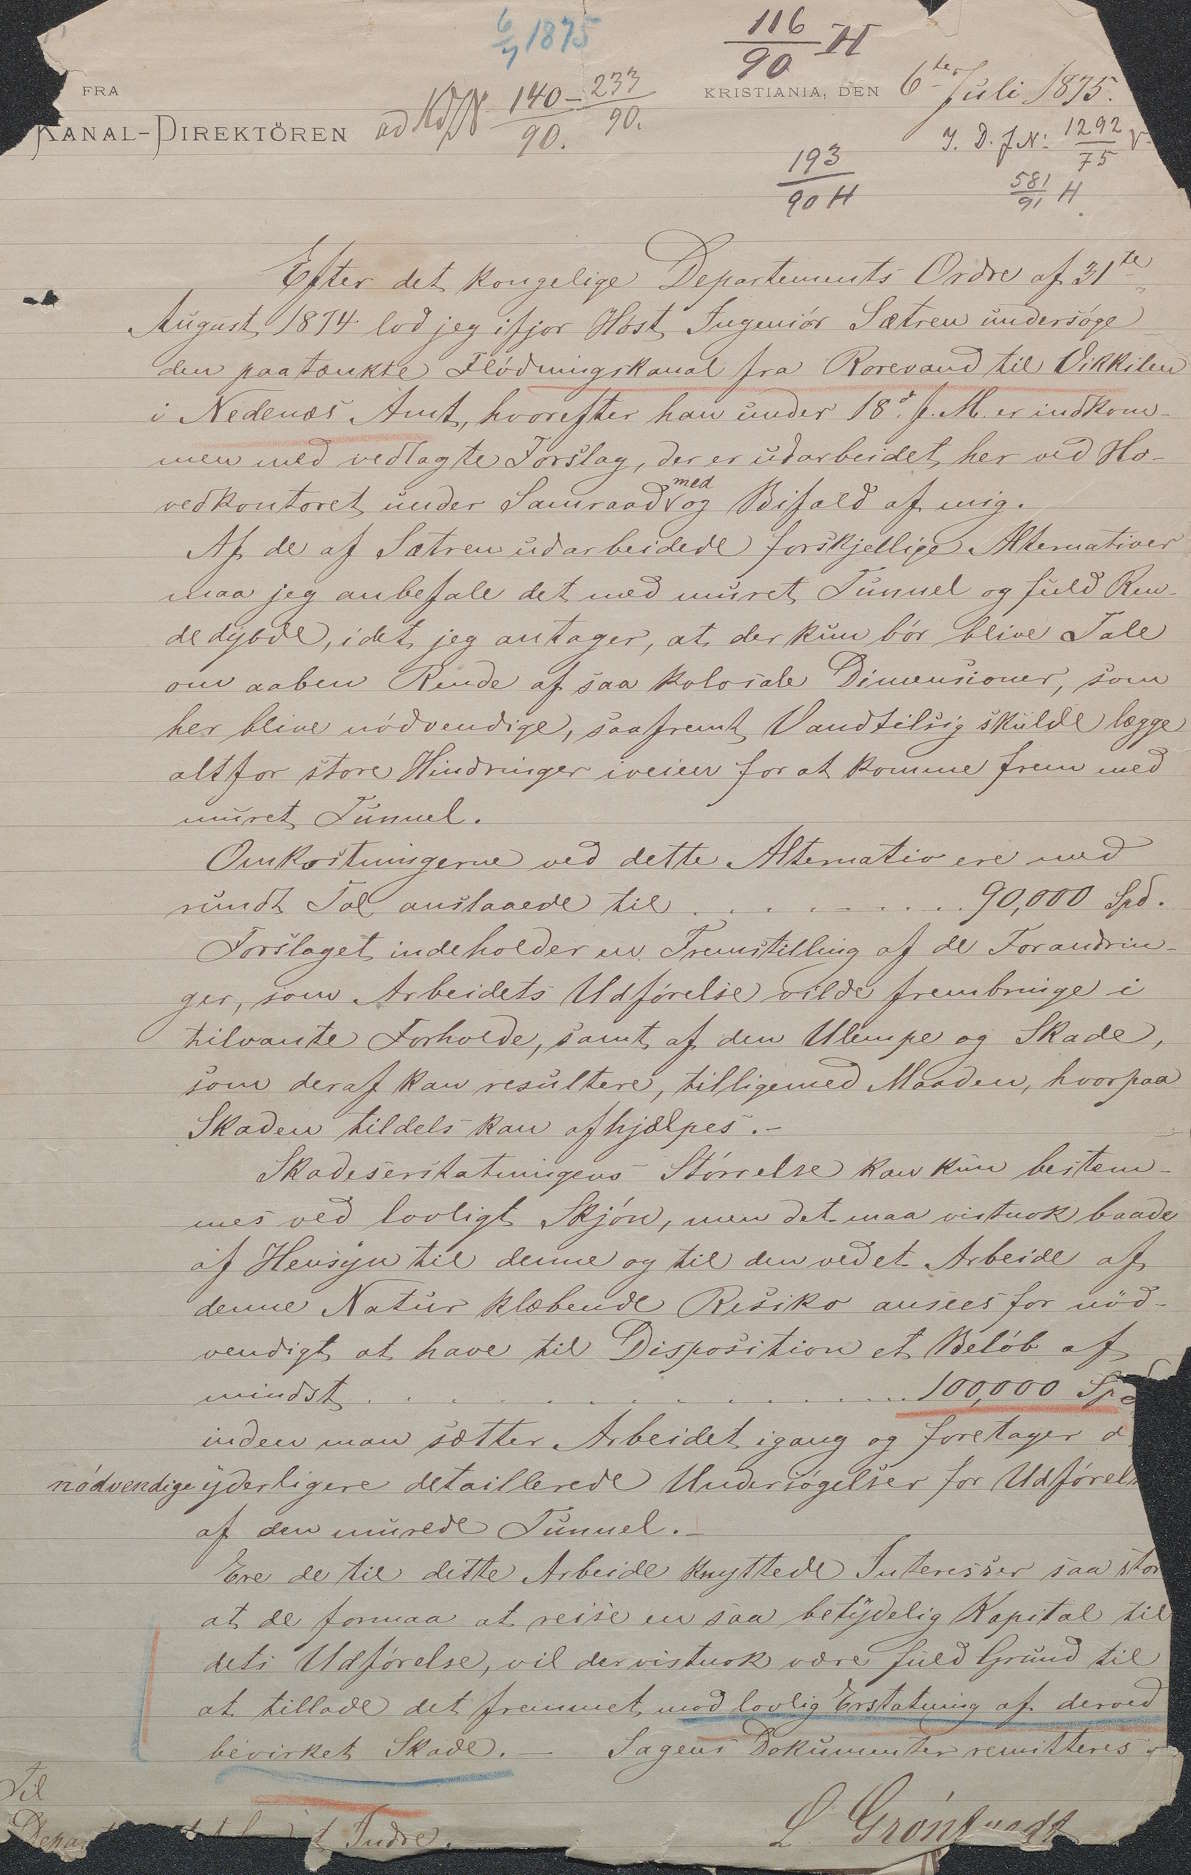 6/7 1875
116/90 H
FRA
KANAL-DIREKTÖREN
ad 140/90. - 233/90.
KRISTIANIA, DEN 6te Juli 1875.
J. D. J N: 1292/75
193/90 H
581/91 H.
Efter det kongelige Departements Ordre af 31te
August 1874 lod jeg ifjor Høst Ingeniör Sætren undersøge
den paatænkte Flödningskanal fra Rorevand til Vikkilen
i Nedenæs Amt, hvorefter han under 18d. f. M. er indkom-
men med vedlagte Forslag, der er udarbeidet her ved Ho-
vedkontoret under Samraad med og Bifald af mig.
Af de af Sætren udarbeidede forskjellige Alternativer
maa jeg anbefale det med muret Tunnel og fuld Ren-
dedybde, idet jeg antager, at der kun bör blive Tale
om aaben Rende af saa kolosale Dimensioner, som
her blive nödvendige, saafremt Vandtilsig skulde lægge
altfor store Hindringer iveien for at komme frem med
muret Tunnel.
Omkostningerne ved dette Alternativ ere med
rundt Tal anslaaede til . . . . . . . . . 90,000 Spd.
Forslaget indeholder en Fremstilling af de Forandrin-
ger, som Arbeidets Udförelse vilde frembringe i
tilvante Forholde, samt af den Ulempe og Skade,
som deraf kan resultere, tilligemed Maaden, hvorpaa
Skaden tildels kan afhjælpes.-
Skadeserstatningens Störrelse kan kun bestem-
mes ved lovligt Skjön, men det maa vistnok baade
af Hensyn til denne og til den ved et Arbeide af
denne Natur klæbende Risiko ansees for nöd-
vendigt at have til Disposition et Belöb af
mindst . . . . . . . . . . . . 100,000 Spd
inden man sætter Arbeidet igang og foretager d
nödvendige yderligere detaillerede Undersøgelser for Udförels
af den murede Tunnel.-
Ere de til dette Arbeide knyttede Interesser saa stor
at de formaa at reise en saa betydelig Kapital til
dets Udförelse, vil der vistnok være fuld Grund til
at tillade det fremmet mod lovlig Erstatning af derved
bevirket Skade.- Sagens Dokumenter remitteres
Til
Depar Indre.
L Gröntvedt